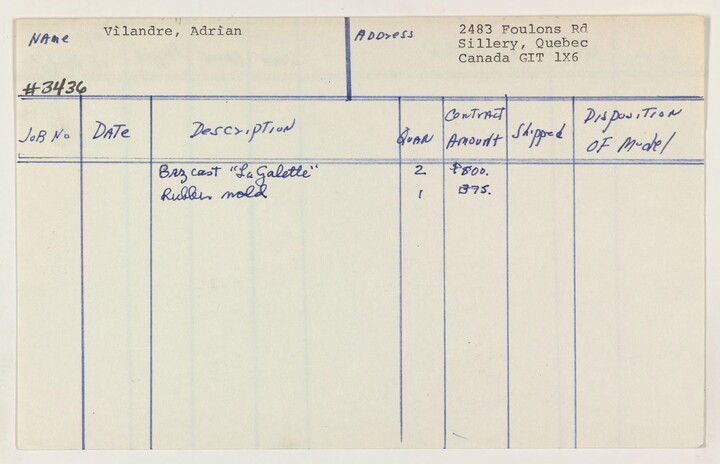 Name
Vilandre, Adrian
Address
2483 Foulons Rd
Sillery, Quebec
Canada GIT 1X6
#3436
Job No
Date
Description
Quan
Contract
Amount
Shipped
Disposition
of Model
Brz cast "La Galette" 2 $800.
Rubber mold 1 375.